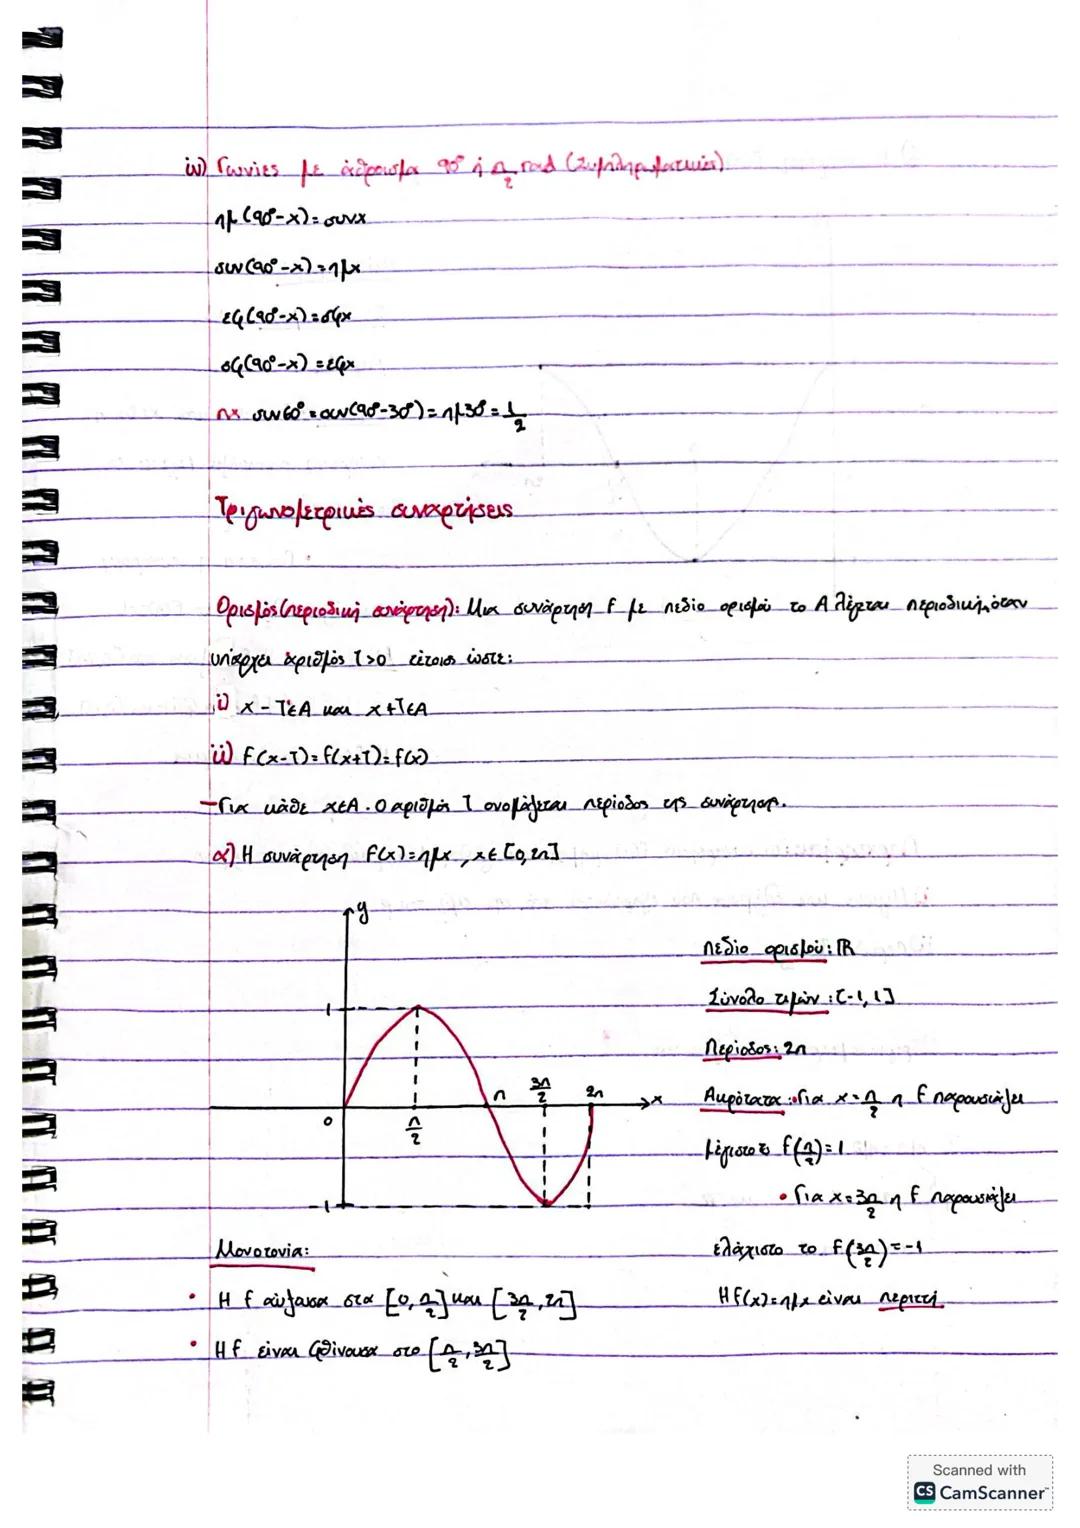 iv) Γωνίες με άθροισμα 90° ή π/2 rad (Συμπληρωματικές)
ημ(90°-x)=συνx
συν(90°-x)=ημx
εφ(90°-x)=σφx
σφ(90°-x)=εφx
πx συν60°=συν(90°-30°)=ημ30°=1/2
Τριγωνομετρικές συναρτήσεις
Ορισμός(περιοδική συνάρτηση): Μια συνάρτηση f με πεδίο ορισμού το Α λέγεται περιοδική, όταν
υπάρχει αριθμός T>0 τέτοιος ώστε:
i) x-T∈A και x+T∈A
ii) f(x-T)=f(x+T)=f(x)
-Για κάθε x∈A. Ο αριθμός T ονομάζεται περίοδος της συνάρτησης.
α) Η συνάρτηση f(x)=ημx, x∈[0,2π]
y
Πεδίο ορισμού: ℝ
1
Σύνολο τιμών: [-1,1]
Περίοδος: 2π
0 π/2 π 3π/2 2π x
Ακρότατα: •Για x=π/2 η f παρουσιάζει
μέγιστο το f(π/2)=1
-1
•Για x=3π/2 η f παρουσιάζει
ελάχιστο το f(3π/2)=-1
Η f(x)=ημx είναι περιττή
Μονοτονία:
• Η f αύξουσα στα [0,π/2] και [3π/2,2π]
• Η f είναι φθίνουσα στο [π/2,3π/2]
Scanned with
CS CamScanner